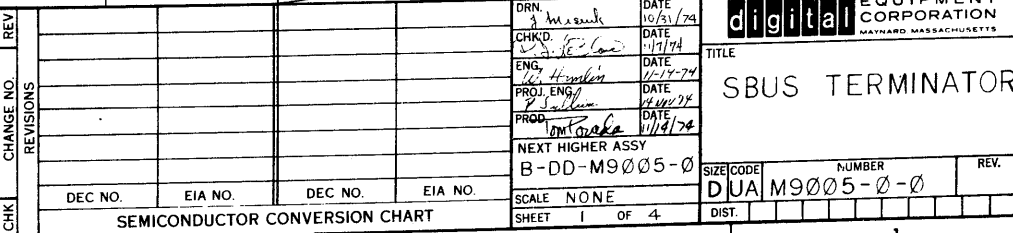 REV
CHANGE NO.
REVISIONS
CHK
DEC NO. EIA NO. DEC NO. EIA NO.
SEMICONDUCTOR CONVERSION CHART
DRN. DATE
10/31/74
CHK'D. DATE
11/7/74
ENG. DATE
11-14-74
PROJ. ENG. DATE
14 NOV 74
PROD. DATE
Tom Porada 11/14/74
NEXT HIGHER ASSY
B-DD-M9005-Ø
SCALE NONE
SHEET 1 OF 4
digital EQUIPMENT
CORPORATION
MAYNARD MASSACHUSETTS
TITLE
SBUS TERMINATOR
SIZE CODE NUMBER REV.
D UA M9005-Ø-Ø
DIST.